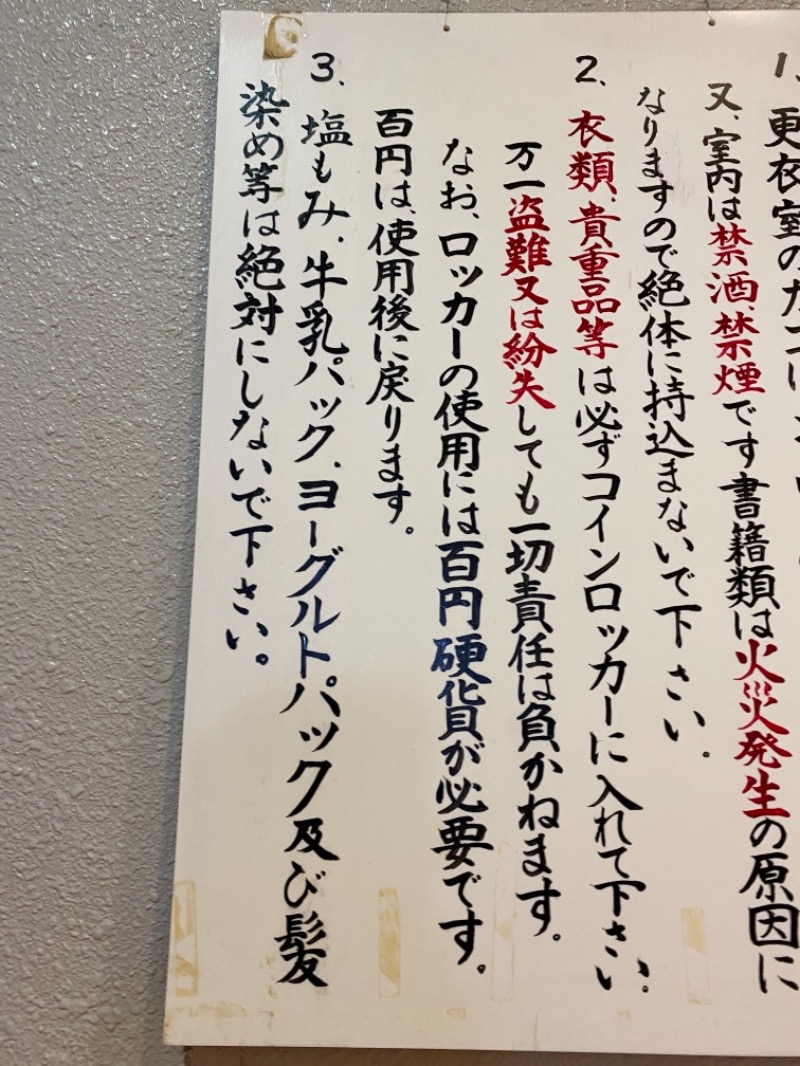 1、更衣室の
又、室内は禁酒、禁煙です書籍類は火災発生の原因に
なりますので絶体に持込まないで下さい。
2、衣類、貴重品等は必ずコインロッカーに入れて下さい。
万一盗難又は紛失しても一切責任は負かねます。
なお、ロッカーの使用には百円硬貨が必要です。
百円は、使用後に戻ります。
3、塩もみ、牛乳パック、ヨーグルトパック及び髪
染め等は絶対にしないで下さい。